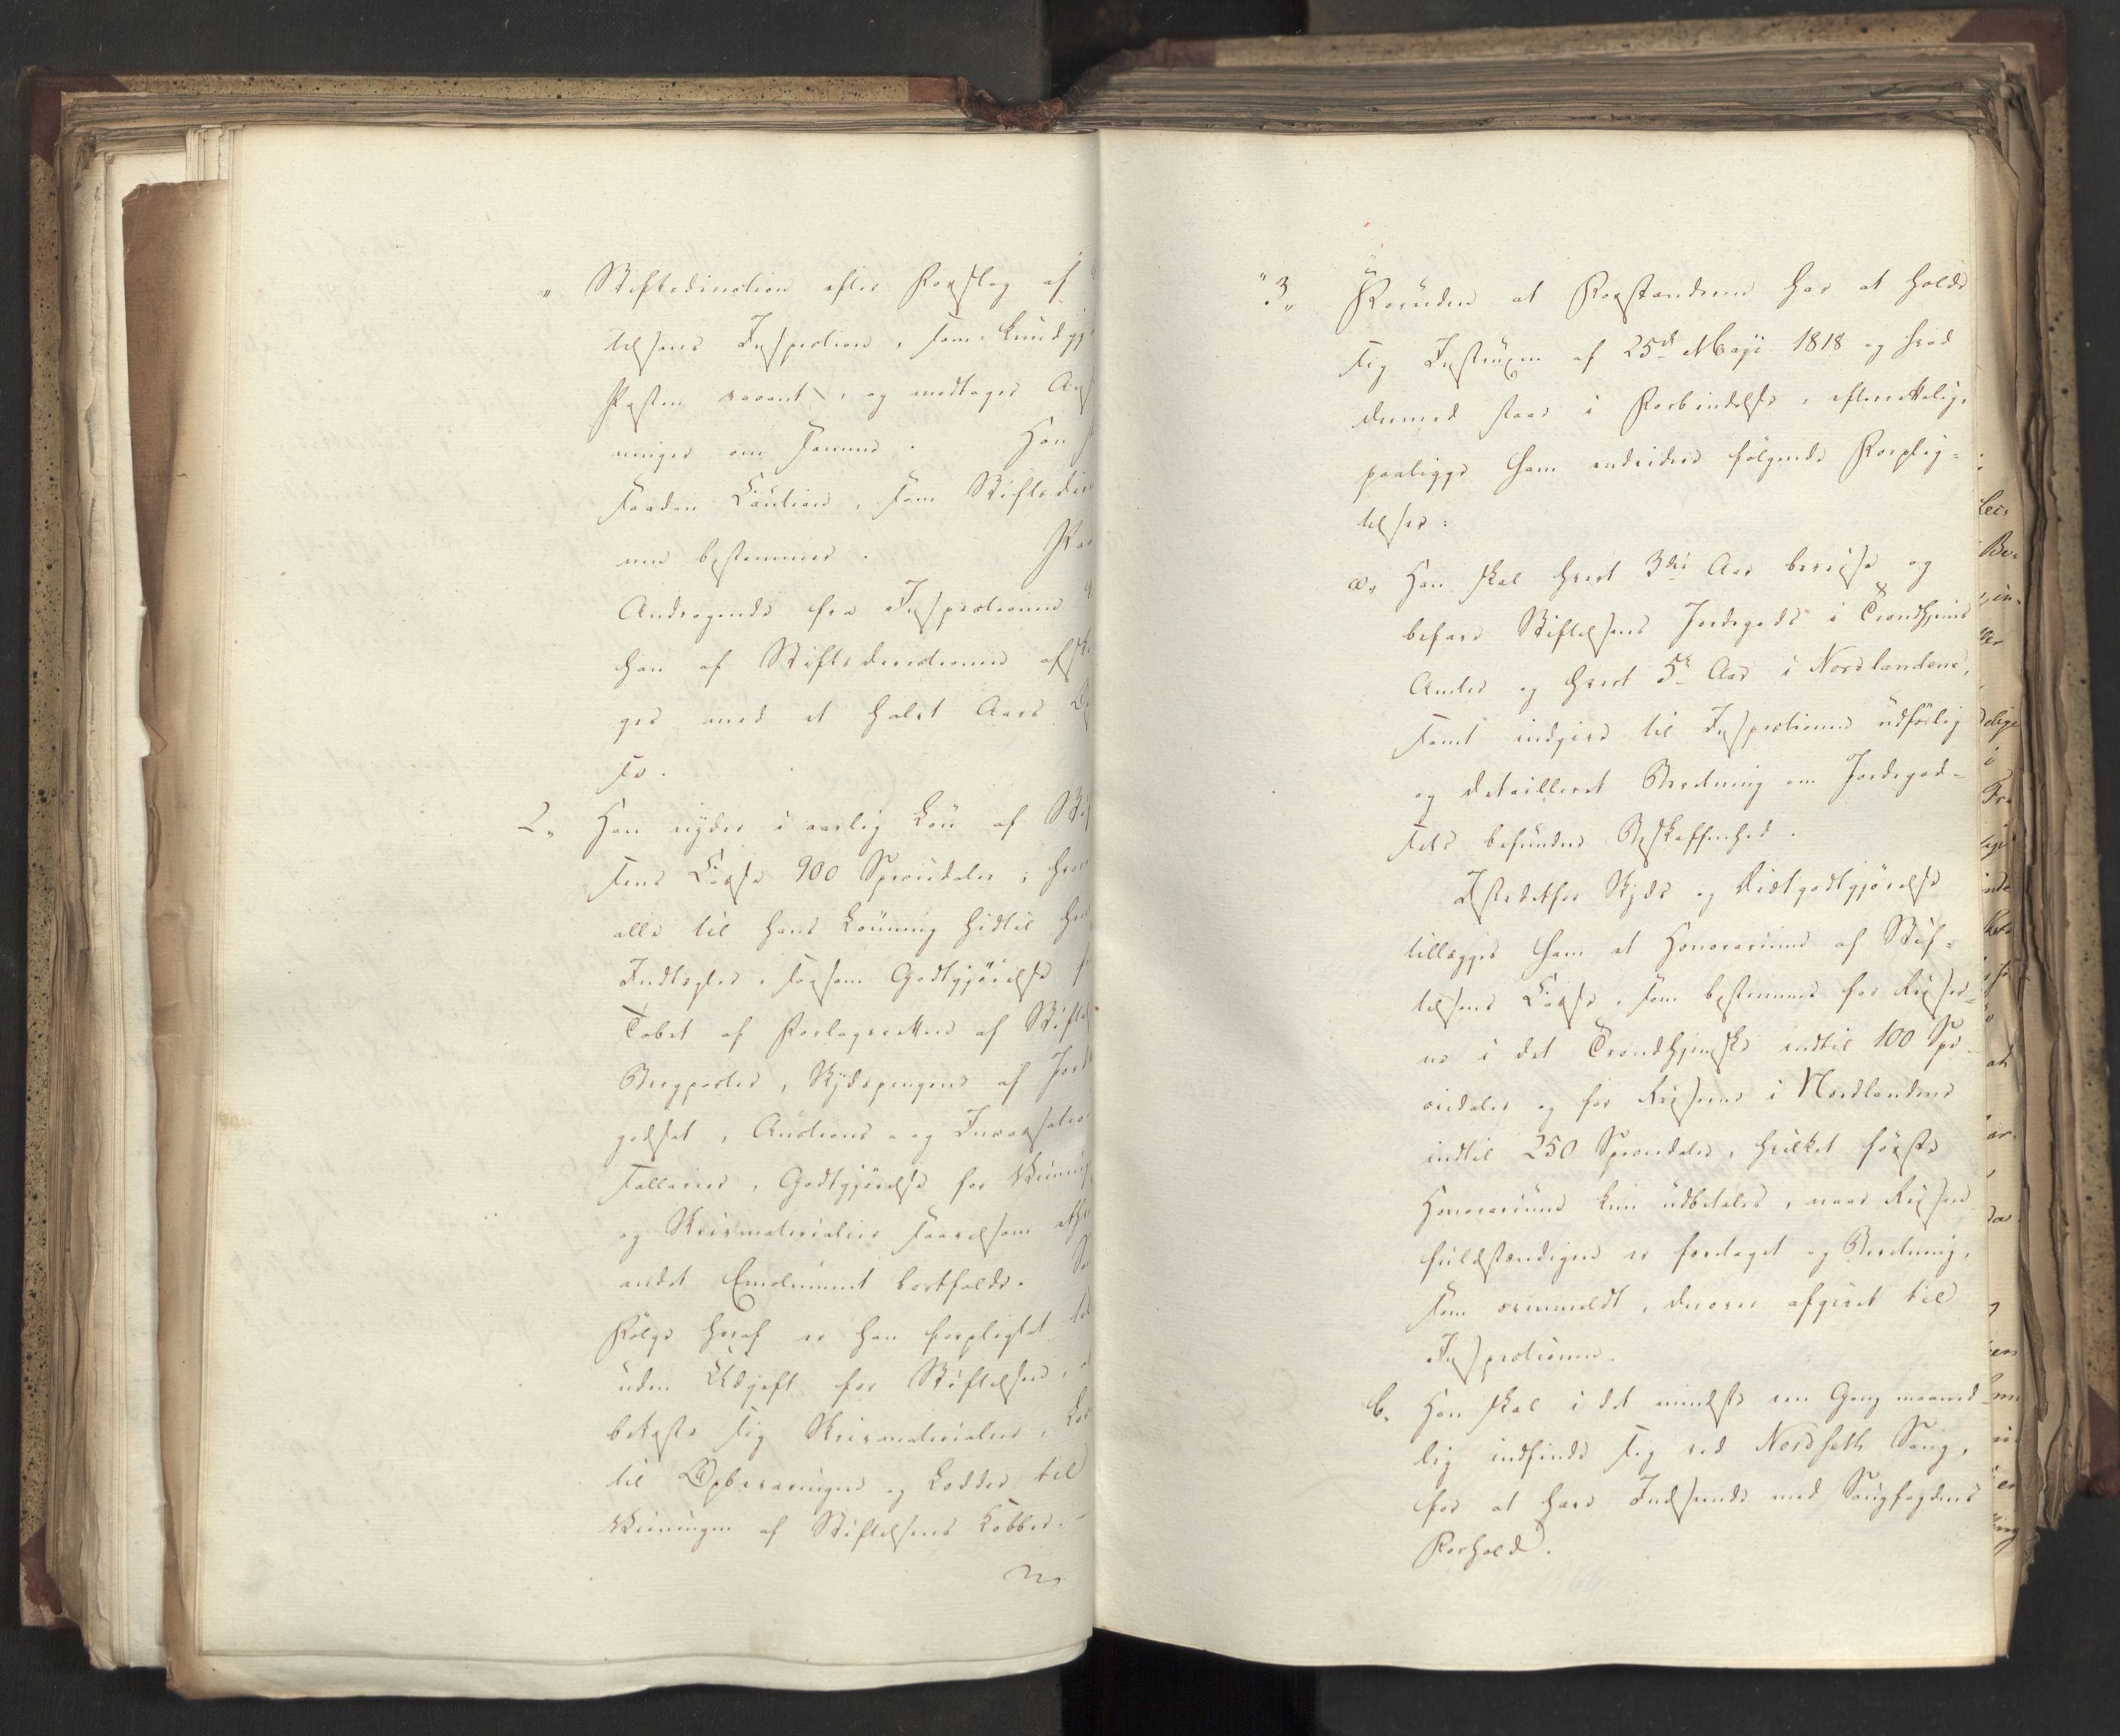 „ Stiftsdirection efter Forslag af
telsens Inspection, som kundgjø
Posten vacant, og modtager Ans
ninger om samme. Han
saadan Caution, som Stiftsdire
nen bestemmer. Paa
Andragende fra Inspectionen
han af Stiftsdirectionen afske
ges med et halvt Aars Op
se.
2„ Han nyder i aarlig Løn af Stif
sens Casse 900 Speciedaler; hvor
alle til hans Lønning hidtil
Indtægter, saasom Godtgjørelse
Tabet af Forlagsretten af Stiftel
Bergparter, Skydspengene af Jord
godset, Auctions- og Incassations
Sallarier, Godtgjørelse for Veining
og Skrivmaterialier saavelsom ethv
andet Emolument bortfalde.
Følge heraf er han forpligtet til
uden Udgift for Stiftelsen, at
bekoste sig Skrivmaterialier,
til Opbevaringen og Lodder til
Veiningen af Stiftelsens Kobber.
"3„ Foruden at Forstanderen har at holde
sig Instruxen af 25de Maji 1818 og hvad
dermed staar i Forbindelse, efterrettelig,
paaligge ham endvidere følgende Forplig=
telser:
a„ Han skal hvert 3die Aar bereise og
befare Stiftelsens Jordegods i Trondhjems
Amter og hvert 5te Aar i Nordlandene,
samt indgive til Inspectionen udførlig
og detailleret Beretning om Jordegod=
sets befundne Beskaffenhed.
Istedetfor Skyds og Diætgodtgjørelse
tillægges ham et Honorarium af Stif=
telsens Casse, som bestemmes for Reiser=
ne i det Trondhjemske indtil 100 Spe=
ciedaler og for Reiserne i Nordlandene
indtil 250 Speciedaler, hvilket første
Honorarium kun udbetales, naar Reisen
fuldstændigen er foretaget og Beretning,
som ovenmeldt, derover afgivet til
Inspectionen.
b. Han skal i det mindste een Gang maaned=
lig indfinde sig ved Nordseth Saug,
for at have Indseende med Saugfogdens
Forhold.